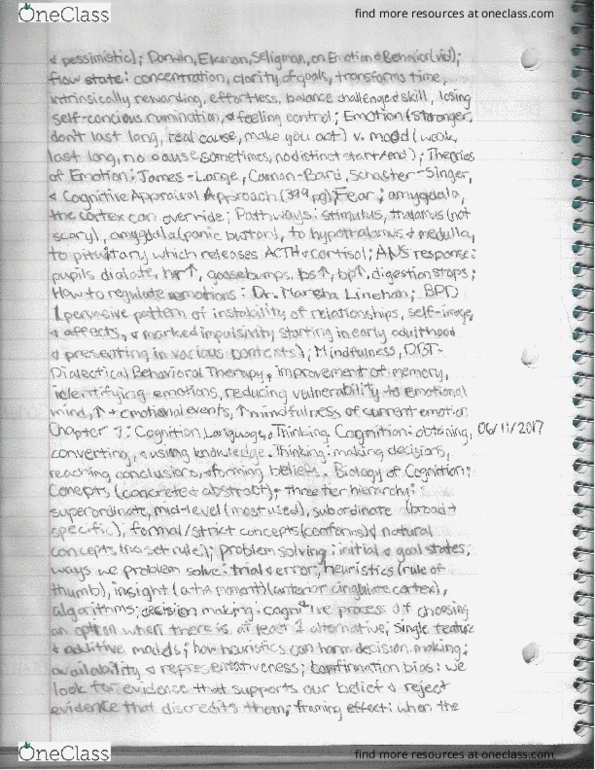 OneClass
find more resources at oneclass.com
& pessimistic); Darwin, Ekman, Seligman, on Emotion & Behavior (vid);
flow state: concentration, clarity of goals, transforms time,
intrinsically rewarding, effortless, balance challenge & skill, losing
self-concious rumination, & feeling control; Emotion (stronger,
don't last long, real cause, make you act) v. mood (weak,
last long, no cause sometimes, no distinct start/end); Theories
of Emotion: James-Lange, Cannon-Bard, Schacter-Singer,
& Cognitive Appraisal Approach (399 pg) Fear: amygdala,
the cortex can override; Pathways: stimulus, thalamus (not
scary), amygdala (panic button), to hypothalamus & medulla,
to pituitary which releases ACTH & cortisol; ANS response:
pupils dialate, hr↑, goosebumps, bs↑, bp↑, digestion stops;
How to regulate emotions: Dr. Marsha Linehan; BPD
(pervasive pattern of instability of relationships, self-image,
& affects, & marked impulsivity starting in early adulthood
& presenting in various contexts); Mindfulness, DBT-
Dialectical Behavioral Therapy, improvement of memory,
identifying emotions, reducing vulnerability to emotional
mind, ↑ + emotional events, ↑ mindfulness of current emotion
Chapter 7: Cognition, Language, & Thinking. Cognition: obtaining, 06/11/2017
converting, & using knowledge. Thinking: making decisions,
reaching conclusions, & forming beliefs. Biology of Cognition:
Concepts (concrete & abstract); three tier hierarchy:
superordinate, mid-level (most used), subordinate (broad →
specific); formal/strict concepts (conforms) & natural
concepts (no set rule); problem solving: initial & goal states,
ways we problem solve: trial & error, heuristics (rule of
thumb), insight (aha moment) (anterior cingulate cortex),
algorithms; decision making: cognitive process of choosing
an option when there is at least 1 alternative; single feature
& additive models; how heuristics can harm decision making:
availability & representativeness; confirmation bias: we
look for evidence that supports our belief & reject
evidence that discredits them; framing effect: when the
OneClass
find more resources at oneclass.com